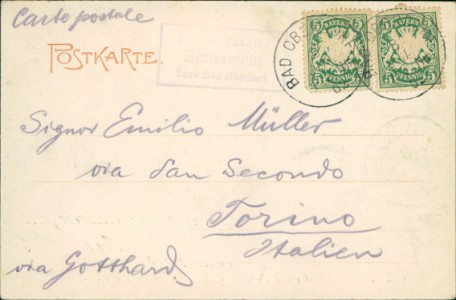 Carte postale
POSTKARTE.
BAYERN
5 5
PFENNIG
BAYERN
5 5
PFENNIG
BAD
Signor Emilio Müller
via San Secondo
Torino
Italien
via Gotthard